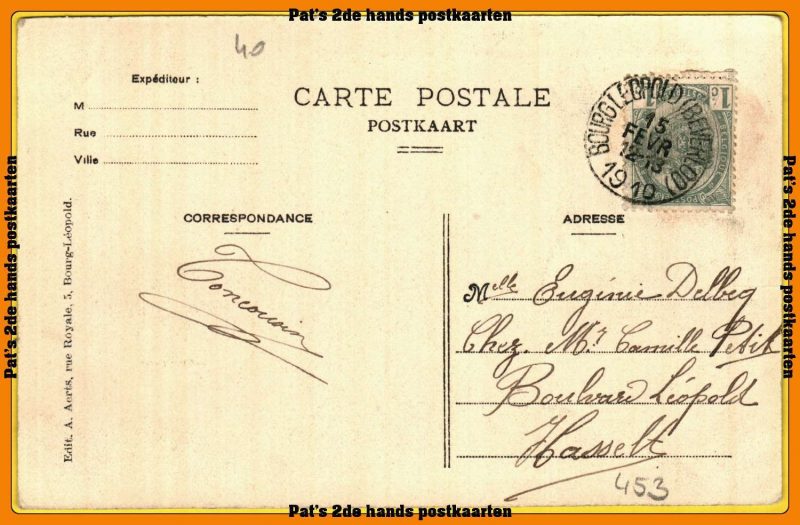 Pat's 2de hands postkaarten
40
Expéditeur :
M
Rue
Ville
CARTE POSTALE
POSTKAART
BOURG LEOPOLD (BEVERLOO)
15
FEVR
12-15
1910
1 c
1
CORRESPONDANCE
ADRESSE
Melle Eugénie Delbeq
Chez. Mr. Camille Petit
Boulvard Léopold
Hasselt
453
Edit. A. Aerts, rue Royale, 5, Bourg-Léopold.
Pat's 2de hands postkaarten
Pat's 2de hands postkaarten
Pat's 2de hands postkaarten